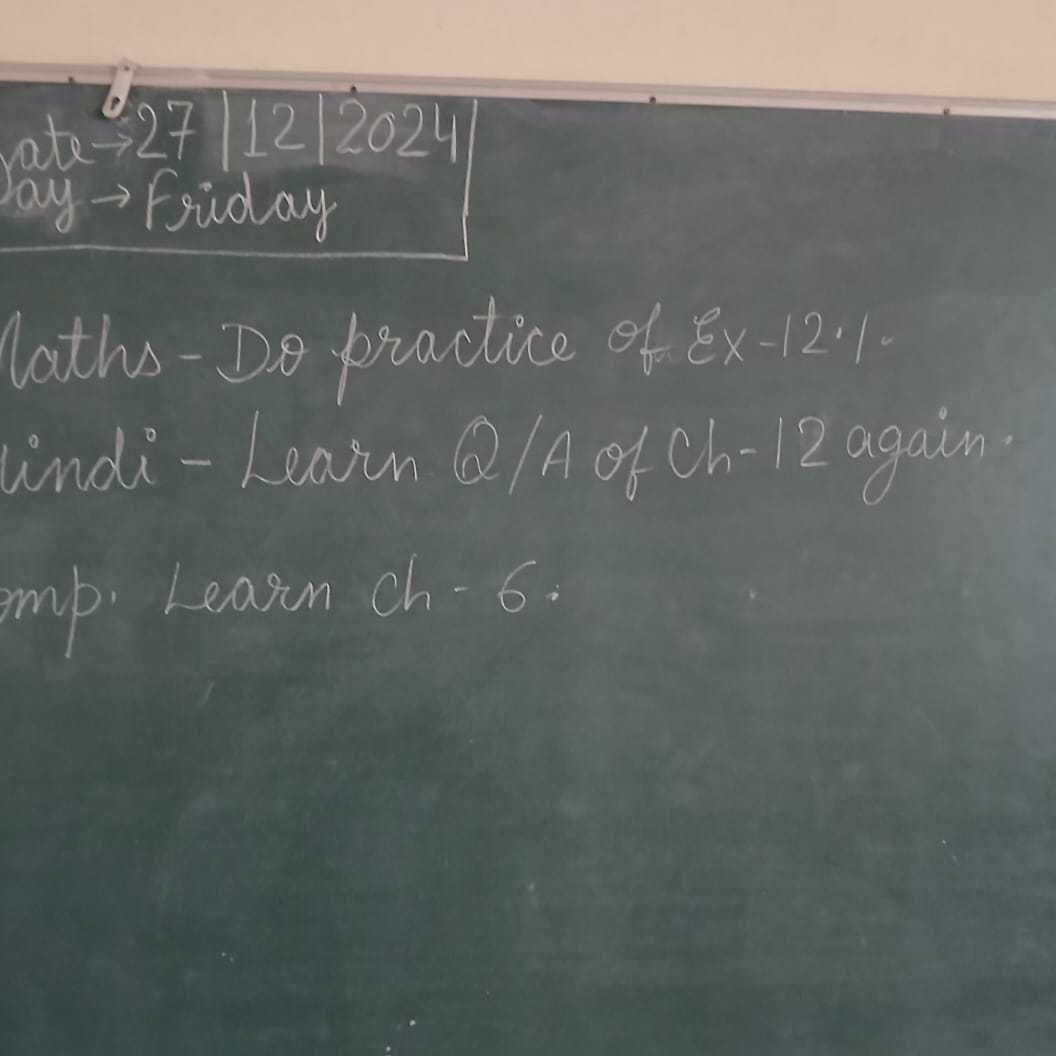 Date → 27/12/2024
Day → Friday
Maths - Do practice of Ex-12.1.
Hindi - Learn Q/A of Ch-12 again.
Comp. Learn ch - 6.